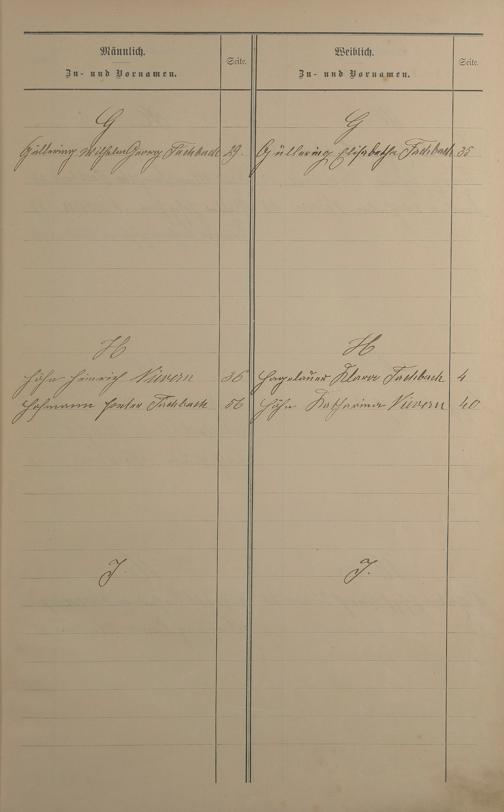 Männlich.
Zu- und Vornamen.
Seite.
G
Güllering Wilhelm Georg Fachbach 29.
H
Höhn Heinrich Nievern 36
Hofmann Fachbach 56
J.
Weiblich.
Zu- und Vornamen.
Seite.
G
Güllering Elisabetha Fachbach 35
H
Hagelauer Klara Fachbach 4
Höhn Katharina Nievern 40
J.